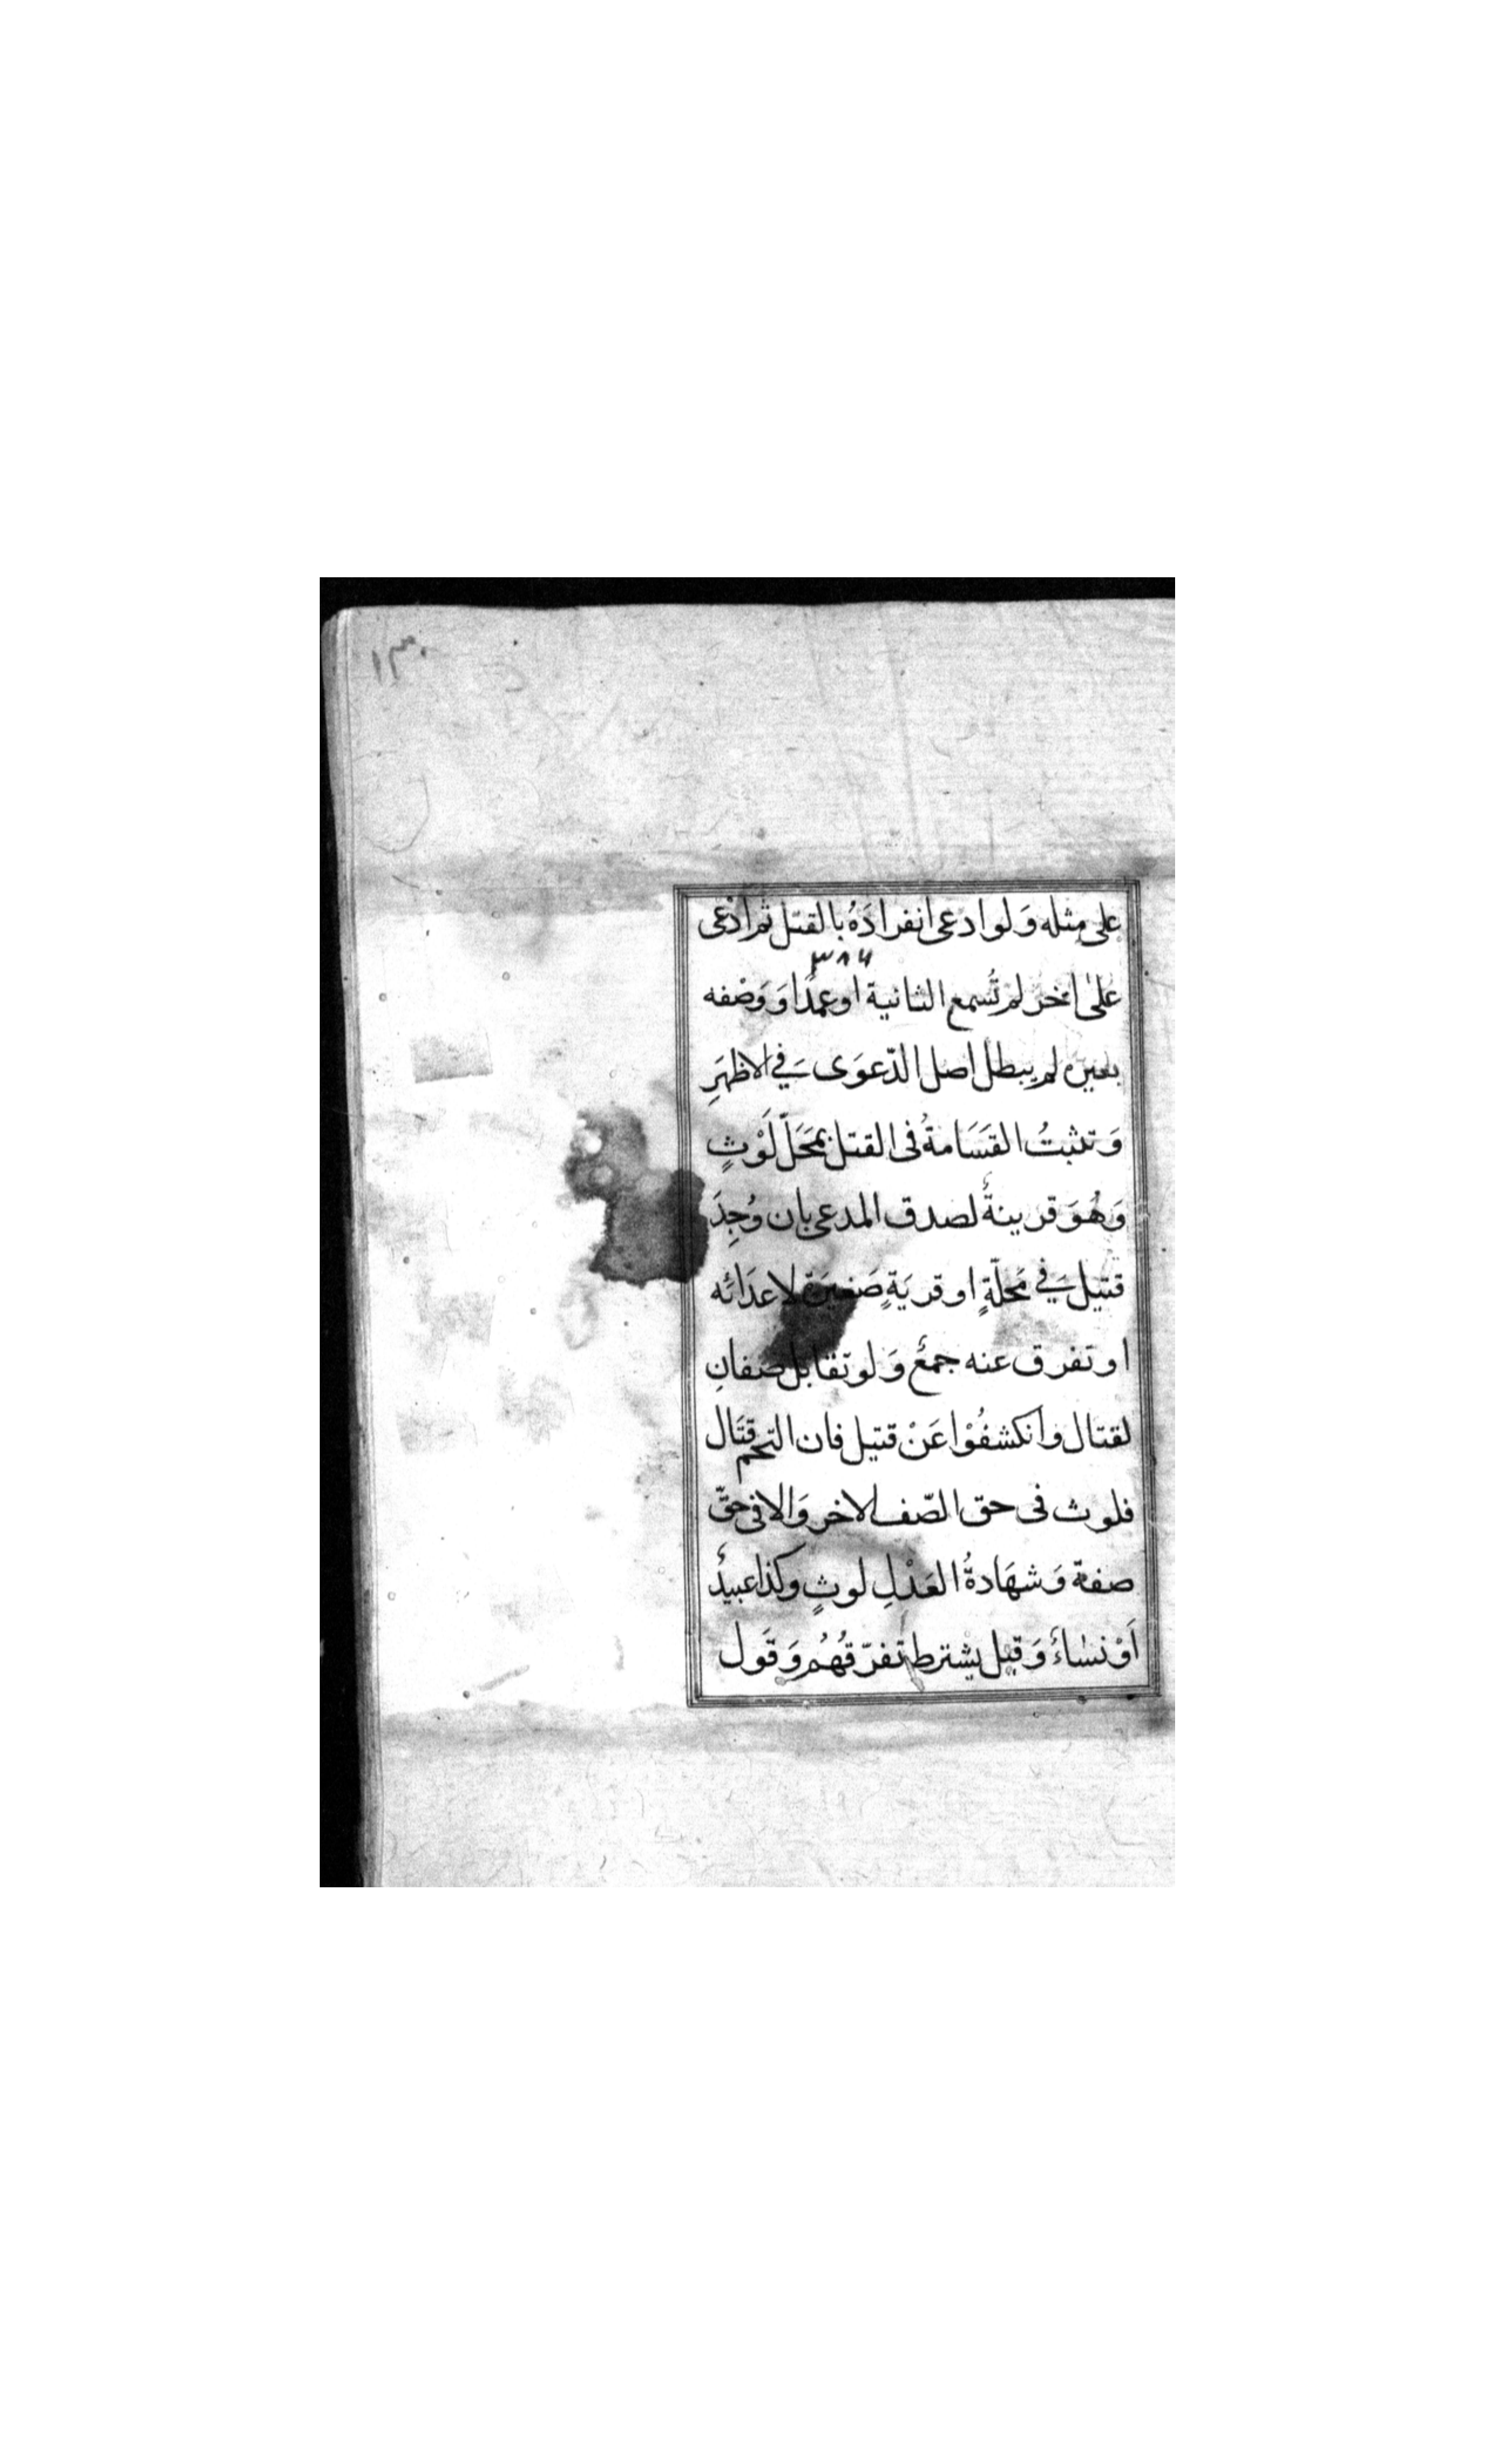 ١٣٠
على مثله وَلوادعى انفرادَهُ بالقتل ثم ادعى
٣٨٤
على اٰخر لم تُسمع الثانية اوعمدًا وَوَصْفه
بغيره لم يبطل اصل الدّعوَى فِي الاظهَرِ
وَتثبتُ القَسَامةُ فى القتل بمحَلّ لَوْثٍ
وَهُوَ قرينةٌ لصدق المدعى بان وُجِدَ
قتيل فِي مَحلّةٍ او قريَةٍ صَغيرَةٍ لاعدَائه
او تفرق عنه جمعٌ وَلو تقابل صَفانِ
لقتال وانكشفُوْا عَنْ قتيل فان التحم قتَال
فلوث فى حق الصّف الاخر وَالا فى حقّ
صفة وَشهَادةُ العَدْلِ لوثٍ وكذا عبيدٌ
اَوْ نسَاءٌ وَقيل يشترط تفرّقهُم وَقَول